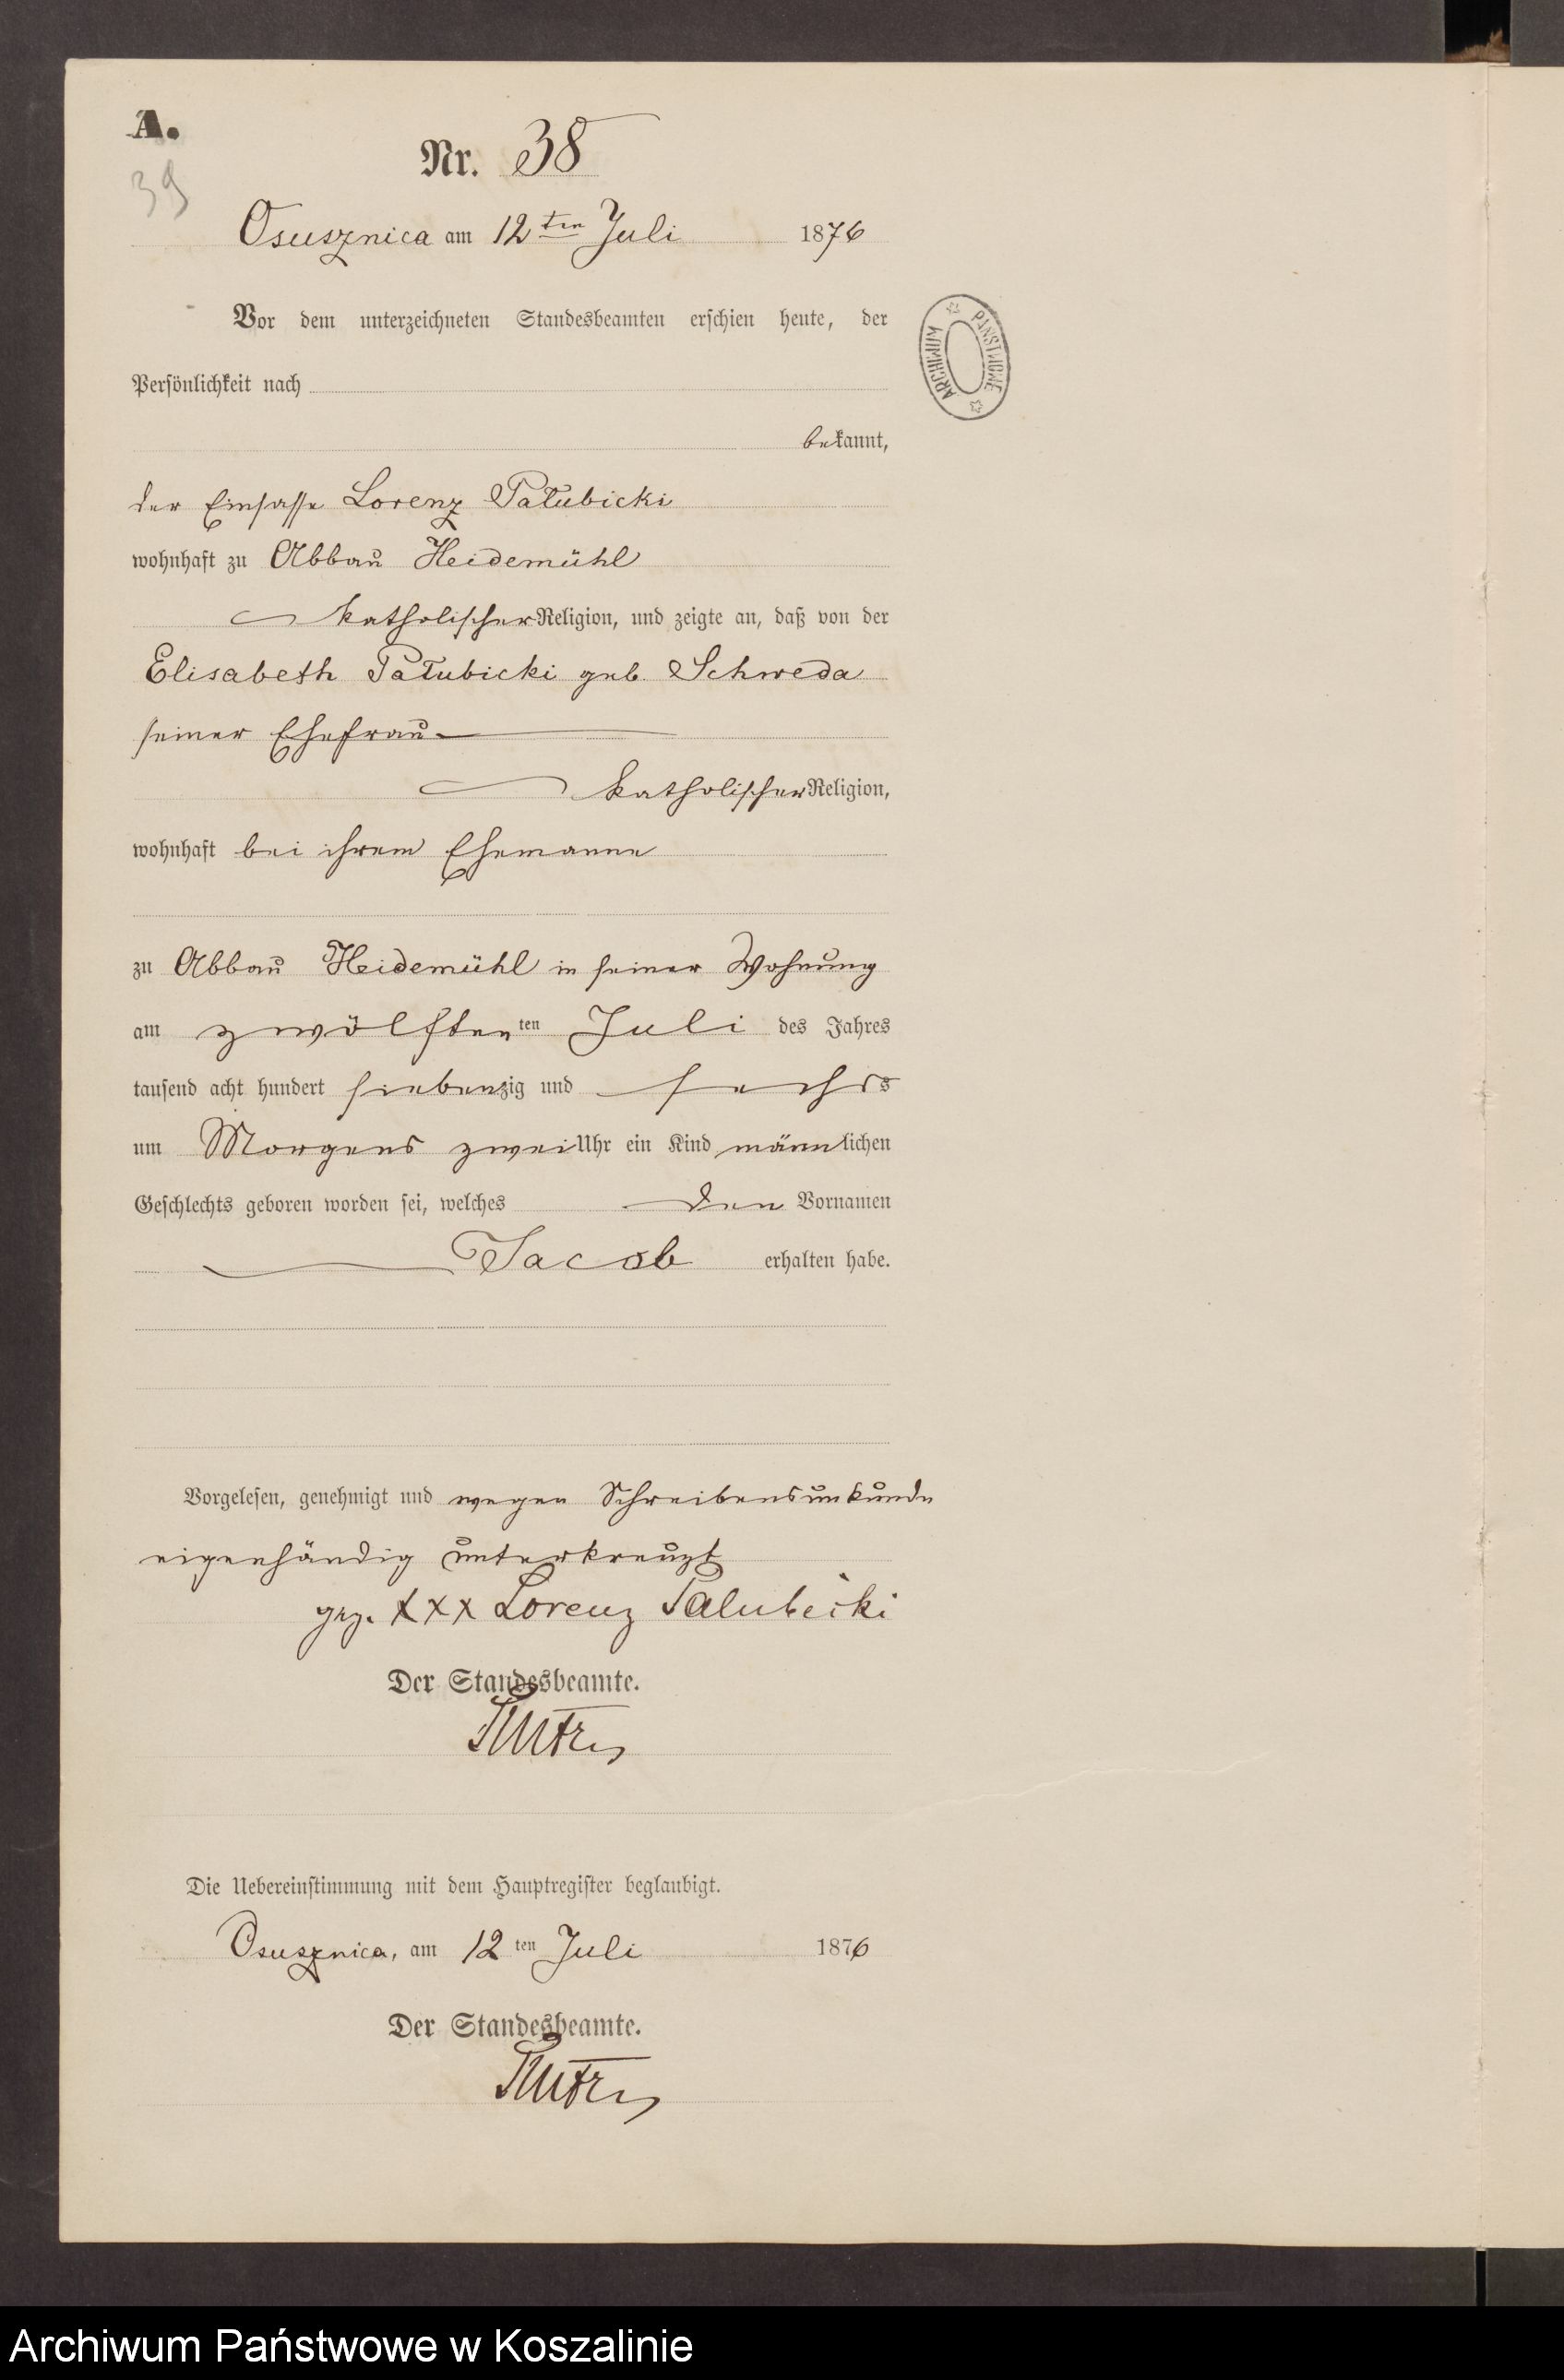 A.
39
Nr. 38
Osusznica am 12ten Juli 1876
Vor dem unterzeichneten Standesbeamten erschien heute, der
Persönlichkeit nach
bekannt,
der Einsasse Lorenz Pałubicki
wohnhaft zu Abbau Heidemühl
katholischer Religion, und zeigte an, daß von der
Elisabeth Pałubicki geb. Schweda
seiner Ehefrau
katholischer Religion,
wohnhaft bei ihrem Ehemanne
zu Abbau Heidemühl in seiner Wohnung
am zwölften ten Juli des Jahres
tausend acht hundert siebenzig und sechs
um Morgens zwei Uhr ein Kind männlichen
Geschlechts geboren worden sei, welches den Vornamen
Jacob erhalten habe.
Vorgelesen, genehmigt und wegen Schreibensunkunde
eigenhändig unterkreuzt
gez. XXX Lorenz Palubicki
Der Standesbeamte.
Die Uebereinstimmung mit dem Hauptregister beglaubigt.
Osusznica, am 12 ten Juli 1876
Der Standesbeamte.
ARCHIWUM PAŃSTWOWE
Archiwum Państwowe w Koszalinie